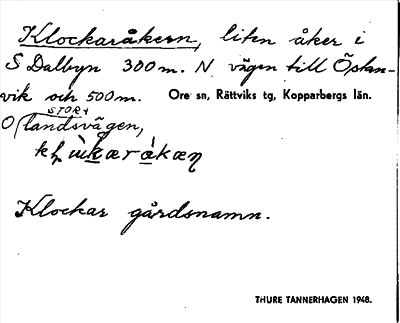 Klockaråkern, liten åker i
S Dalbyn 300m. N. vägen till Östan-
vik och 500m. Ore sn, Rättviks tg, Kopparbergs län.
STORA
O landsvägen,
Klockar gårdsnamn.
THURE TANNERHAGEN 1948.